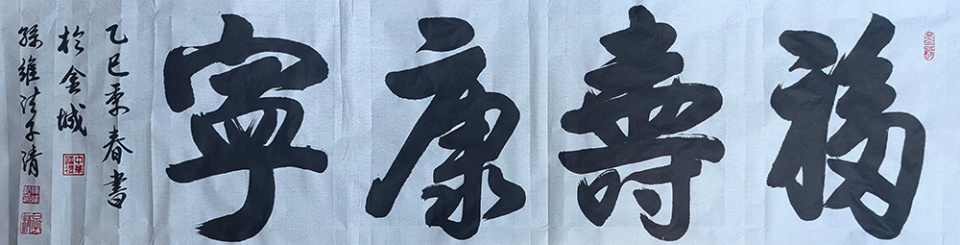 福壽康寧
乙巳季春書
於金城
孫維清